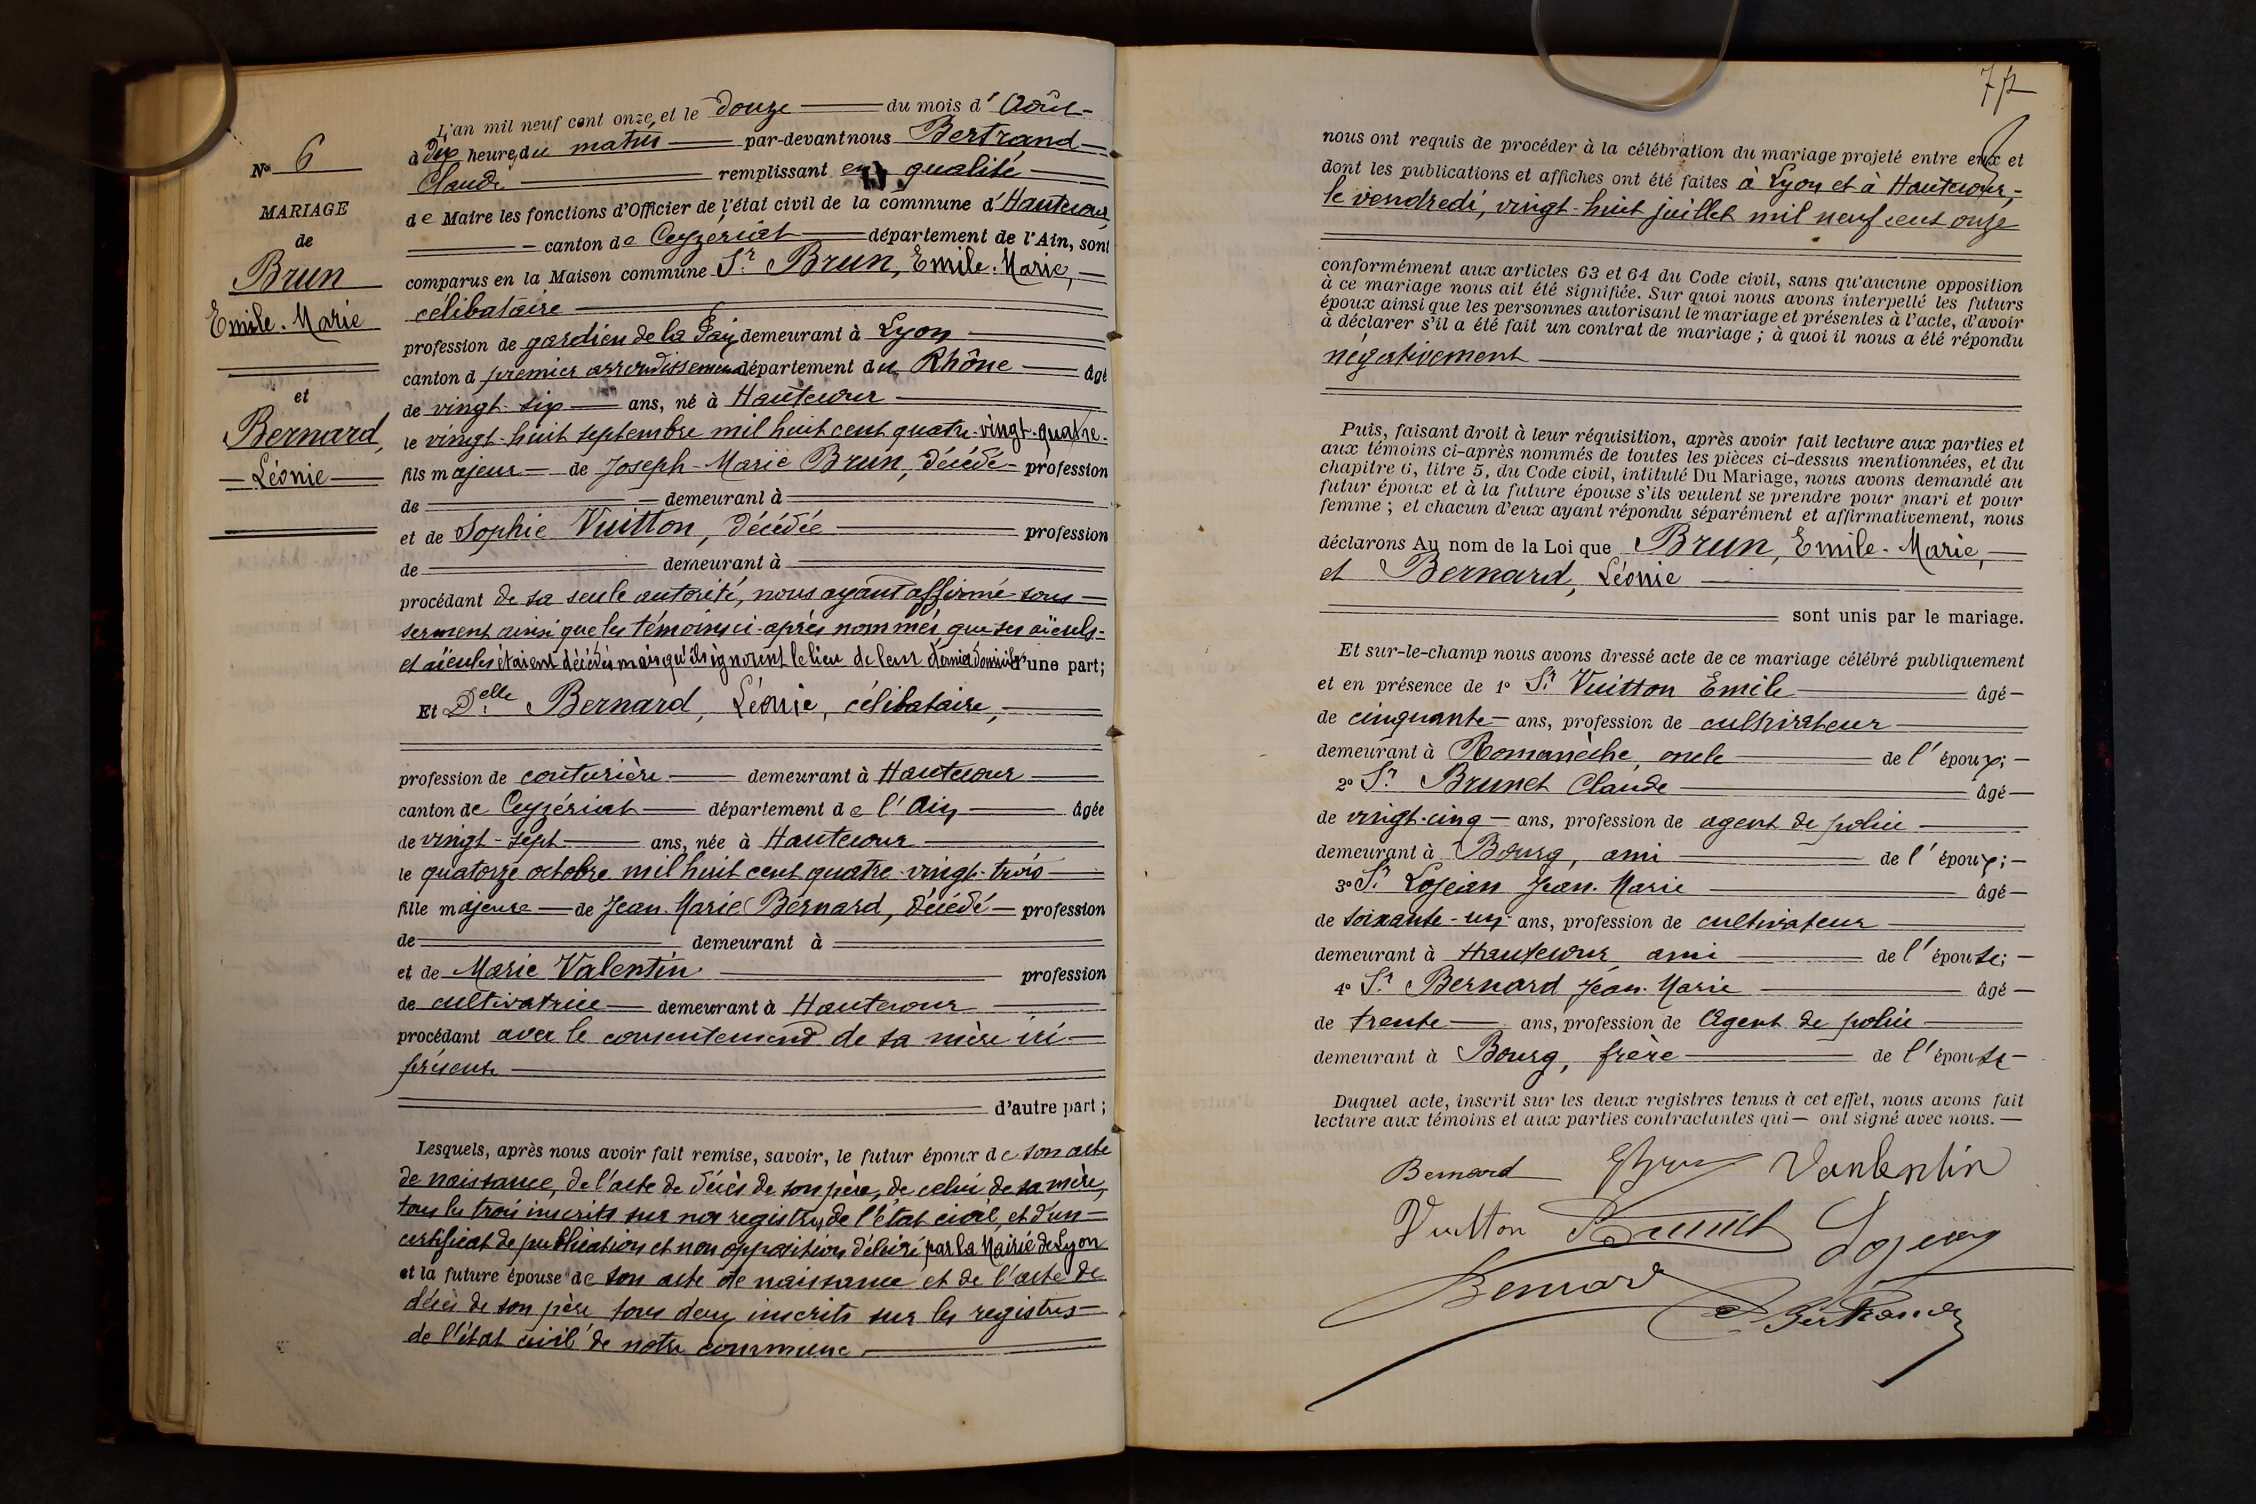 L'an mil neuf cent onze, et le douze du mois d'Août
à dix heures du matin par-devant nous Bertrand
Claude remplissant en qualité
de Maire les fonctions d'Officier de l'état civil de la commune d'Hautecour,
canton de Ceyzériat département de l'Ain, sont
comparus en la Maison commune Sr. Brun, Emile-Marie,
célibataire
profession de gardien de la Paix demeurant à Lyon
canton d premier arrondissement département du Rhône âgé
de vingt-six ans, né à Hautecour
le vingt-huit septembre mil huit cent quatre-vingt-quatre
fils majeur de Joseph-Marie Brun, décédé profession
de demeurant à
et de Sophie Vuitton, décédée profession
de demeurant à
procédant de sa seule autorité, nous ayant affirmé sous
serment ainsi que les témoins ci-après nommés, que ses aïeuls
et aïeules étaient décédés mais qu'ils ignorent le lieu de leur dernier domicile d'une part;
Et Delle Bernard, Léonie, célibataire,
profession de couturière demeurant à Hautecour
canton de Ceyzériat département de l'Ain âgée
de vingt-sept ans, née à Hautecour
le quatorze octobre mil huit cent quatre-vingt-trois
fille majeure de Jean-Marie Bernard, décédé profession
de demeurant à
et de Marie Valentin profession
de cultivatrice demeurant à Hautecour
procédant avec le consentement de sa mère ici
présente
d'autre part;
Lesquels, après nous avoir fait remise, savoir, le futur époux de son acte
de naissance, de l'acte de décès de son père, de celui de sa mère,
tous les trois inscrits sur nos registres de l'état civil, et d'un
certificat de publication et non opposition délivré par la Mairie de Lyon
et la future épouse de son acte de naissance et de l'acte de
décès de son père tous deux inscrits sur les registres
de l'état civil de notre commune
No 6
MARIAGE
de
Brun
Emile-Marie
et
Bernard,
Léonie
nous ont requis de procéder à la célébration du mariage projeté entre eux et
dont les publications et affiches ont été faites à Lyon et à Hautecour,
le vendredi, vingt-huit juillet mil neuf cent onze
conformément aux articles 63 et 64 du Code civil, sans qu'aucune opposition
à ce mariage nous ait été signifiée. Sur quoi nous avons interpellé les futurs
époux ainsi que les personnes autorisant le mariage et présentes à l'acte, d'avoir
à déclarer s'il a été fait un contrat de mariage; à quoi il nous a été répondu
négativement
Puis, faisant droit à leur réquisition, après avoir fait lecture aux parties et
aux témoins ci-après nommés de toutes les pièces ci-dessus mentionnées, et du
chapitre 6, titre 5, du Code civil, intitulé Du Mariage, nous avons demandé au
futur époux et à la future épouse s'ils veulent se prendre pour mari et pour
femme; et chacun d'eux ayant répondu séparément et affirmativement, nous
déclarons Au nom de la Loi que Brun, Emile-Marie,
et Bernard, Léonie
sont unis par le mariage.
Et sur-le-champ nous avons dressé acte de ce mariage célébré publiquement
et en présence de 1o Sr. Vuitton Emile âgé
de cinquante ans, profession de cultivateur
demeurant à Romanèche, oncle de l'époux;
2o Sr. Brunet Claude âgé
de vingt-cinq ans, profession de agent de police
demeurant à Bourg, ami de l'époux;
3o Sr. Lojean Jean-Marie âgé
de soixante-un ans, profession de cultivateur
demeurant à Hautecour ami de l'épouse;
4o Sr. Bernard Jean-Marie âgé
de trente ans, profession de Agent de police
demeurant à Bourg, frère de l'épouse
Duquel acte, inscrit sur les deux registres tenus à cet effet, nous avons fait
lecture aux témoins et aux parties contractantes qui ont signé avec nous.
Bernard Valentin
Vuitton Brunet Lojean
Bernard Bertrand